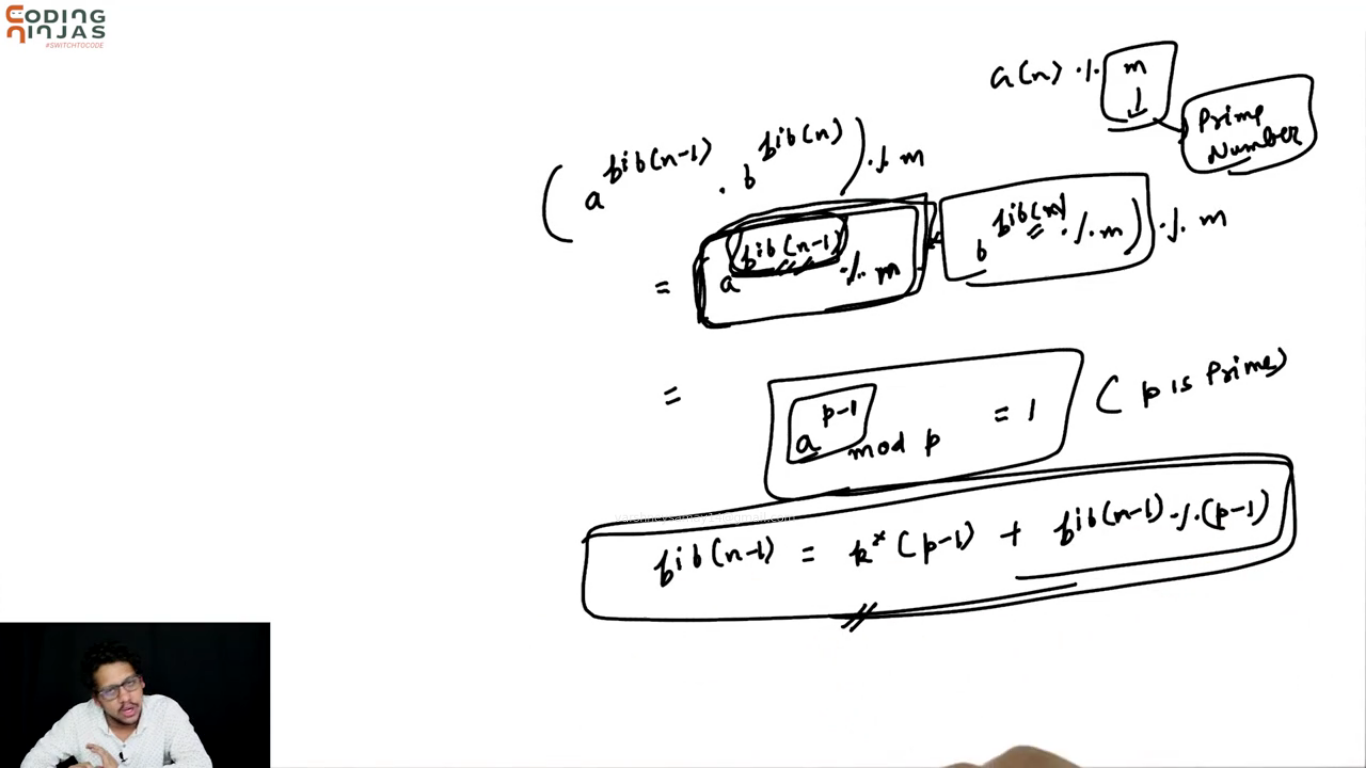 CODING
NINJAS
#SWITCHTOCODE
a(n) % m
↓
Prime
Number
( a^fib(n-1) . b^fib(n) ) % m
= a^fib(n-1) % m * b^fib(n) % m ) % m
= a^p-1 mod p = 1 ( p is Prime)
fib(n-1) = k* (p-1) + fib(n-1) % (p-1)